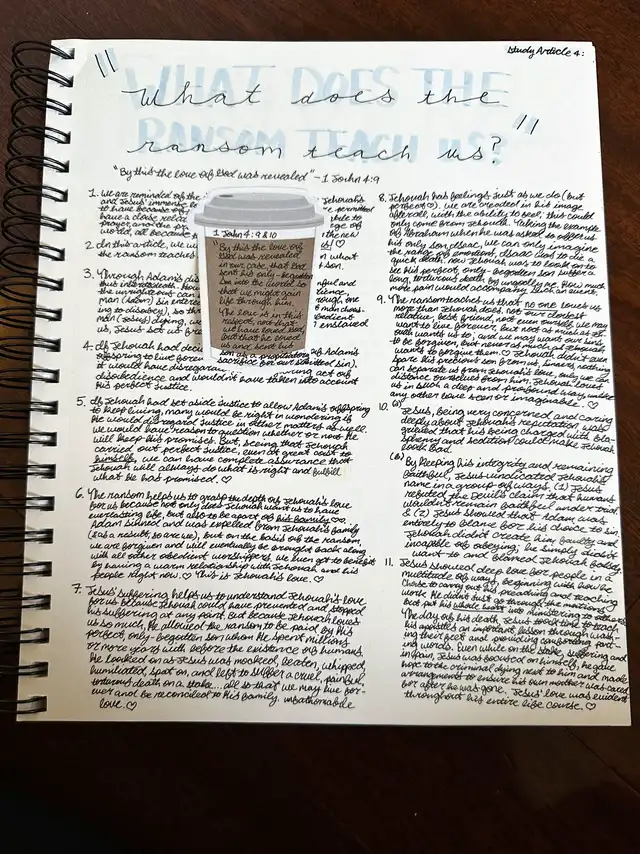 Study Article 4:
WHAT DOES THE
RANSOM TEACH US?
"What does the
ransom teach us?"
"By this the love of God was revealed" - 1 John 4:9
1. We are reminded of the
and Jesus' immense
to have because of
have a close rela
prayer, and the pr
world, all because
2. In this article, we
the ransom teaches
3. Through Adam's dis
4. If Jehovah had dec
offspring to live forev
it would have disregar
disobedience and wouldn't have taken into account
His perfect justice.
1 John 4:9 & 10
"By this the love of
God was revealed
in our case, that God
sent his only-begotten
Son into the world so
that we might gain
life through him.
The love is in this
respect, not that
we have loved God,
but that he loved
us and sent his
son as a propitiatory
sacrifice for our
of Adam's
act of
5. If Jehovah had set aside justice to allow Adam's offspring
to keep living, many would be right in wondering if
He would disregard justice in other matters as well.
We would have reason to question whether or not He
will keep His promises. But, seeing that Jehovah
carried out perfect justice, even at great cost to
himself, we can have complete assurance that
Jehovah will always do what is right and fulfill
what He has promised. ♡
6. The ransom helps us to grasp the depth of Jehovah's love
for us because not only does Jehovah want us to have
everlasting life, but also to be apart of his family ♡.
Adam sinned and was expelled from Jehovah's family
(as a result, so are we), but on the basis of the ransom,
we are forgiven and will eventually be brought back along
with all other obedient worshippers. We even get to benefit
by having a warm relationship with Jehovah and his
people right now. ♡ This is Jehovah's love. ♡
7. Jesus suffering helps us to understand Jehovah's love
for us because Jehovah could have prevented and stopped
his suffering at any point. But because Jehovah loves
us so much, He allowed the ransom to be paid by His
perfect, only-begotten son whom He spent millions
or more years with before the existence of humans.
He looked on as Jesus was mocked, beaten, whipped,
humiliated, spat on, and left to suffer a cruel, painful,
torturous death on a stake...all so that we may live for-
ever and be reconciled to His family. unfathomable
love. ♡
8. Jehovah has feelings just as we do (but
perfect ♡). We are created in his image
afterall, with the ability to feel; this could
only come from Jehovah. Taking the example
of Abraham when he was asked to offer up
his only son, Isaac, we can only imagine
the range of emotion. Isaac was to die a
quick death. Now Jehovah was to look on to
see his perfect, only-begotten son suffer a
long, torturous death by ungodly men. How much
more pain would accompany such an event.
9. The ransom teaches us that no one loves us
more than Jehovah does, not our closest
relative, best friend, not even ourself. We may
want to live forever, but not as much as Jeh-
ovah wants us to, and we may want our sins
to be forgiven, but never as much as Jehovah
wants to forgive them. If Jehovah didn't even
spare his precious son from misery, nothing
can separate us from Jehovah's love, only we can
distance ourselves from him. Jehovah loves
us in such a deep and profound way, unlike
any other love seen or imaginable. ♡
10. (a)
Jesus, being very concerned and caring
deeply about Jehovah's reputation was
grieved that his being charged with bla-
sphemy and sedition could make Jehovah
look bad.
(b) By keeping his integrity and remaining
faithful, Jesus vindicated Jehovah's
name in a group of ways. (1) Jesus
refuted the Devil's claim that humans
wouldn't remain faithful under trial
& (2) Jesus showed that Adam was
entirely to blame for his choice to sin,
Jehovah didn't create him faulty and
incapable of obeying, he simply didn't
want to and blamed Jehovah falsely.
11. Jesus showed deep love for people in a
multitude of ways, beginning with how he
chose to carry out his preaching and teaching
work. He didn't just go through the motions
but put his whole heart into ministering to others.
The day of his death, Jesus took time to teach
his apostles an important lesson through wash-
ing their feet and providing
words. Even while on the stake, suffering and
in pain, Jesus was focused on himself, he gave
hope to the criminal dying next to him and made
arrangements to ensure his own mother was cared
for after he was gone. Jesus' love was evident
throughout his entire life course. ♡